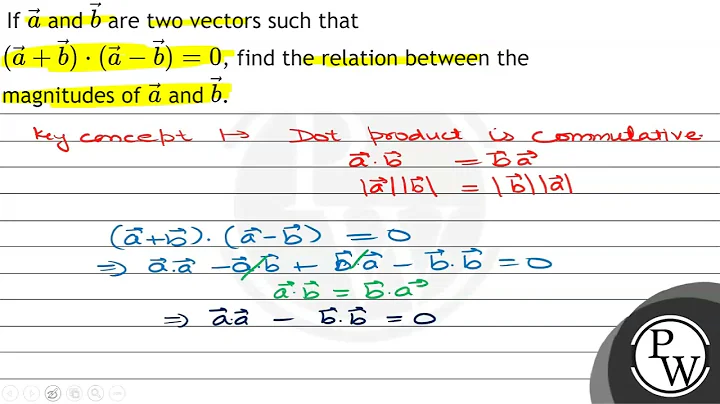 If a⃗ and b⃗ are two vectors such that
(a⃗ + b⃗) · (a⃗ − b⃗) = 0, find the relation between the
magnitudes of a⃗ and b⃗.
Key concept ↦ Dot product is commutative.
a⃗·b⃗ = b⃗ a⃗
|a⃗||b⃗| = |b⃗||a⃗|
(a⃗+b⃗)·(a⃗−b⃗) = 0
⇒ a⃗·a⃗ − a⃗·b⃗ + b⃗·a⃗ − b⃗·b⃗ = 0
a⃗·b⃗ = b⃗·a⃗
⇒ a⃗·a⃗ − b⃗·b⃗ = 0
P
W